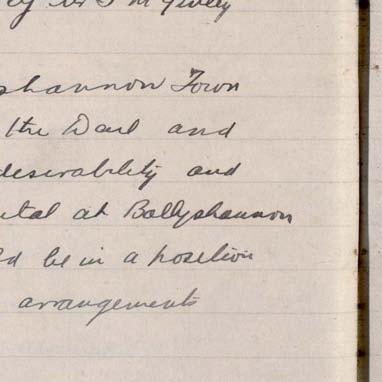 shannon Town
the Dail and
desirability and
ital at Ballyshannon
ld be in a position
arrangements